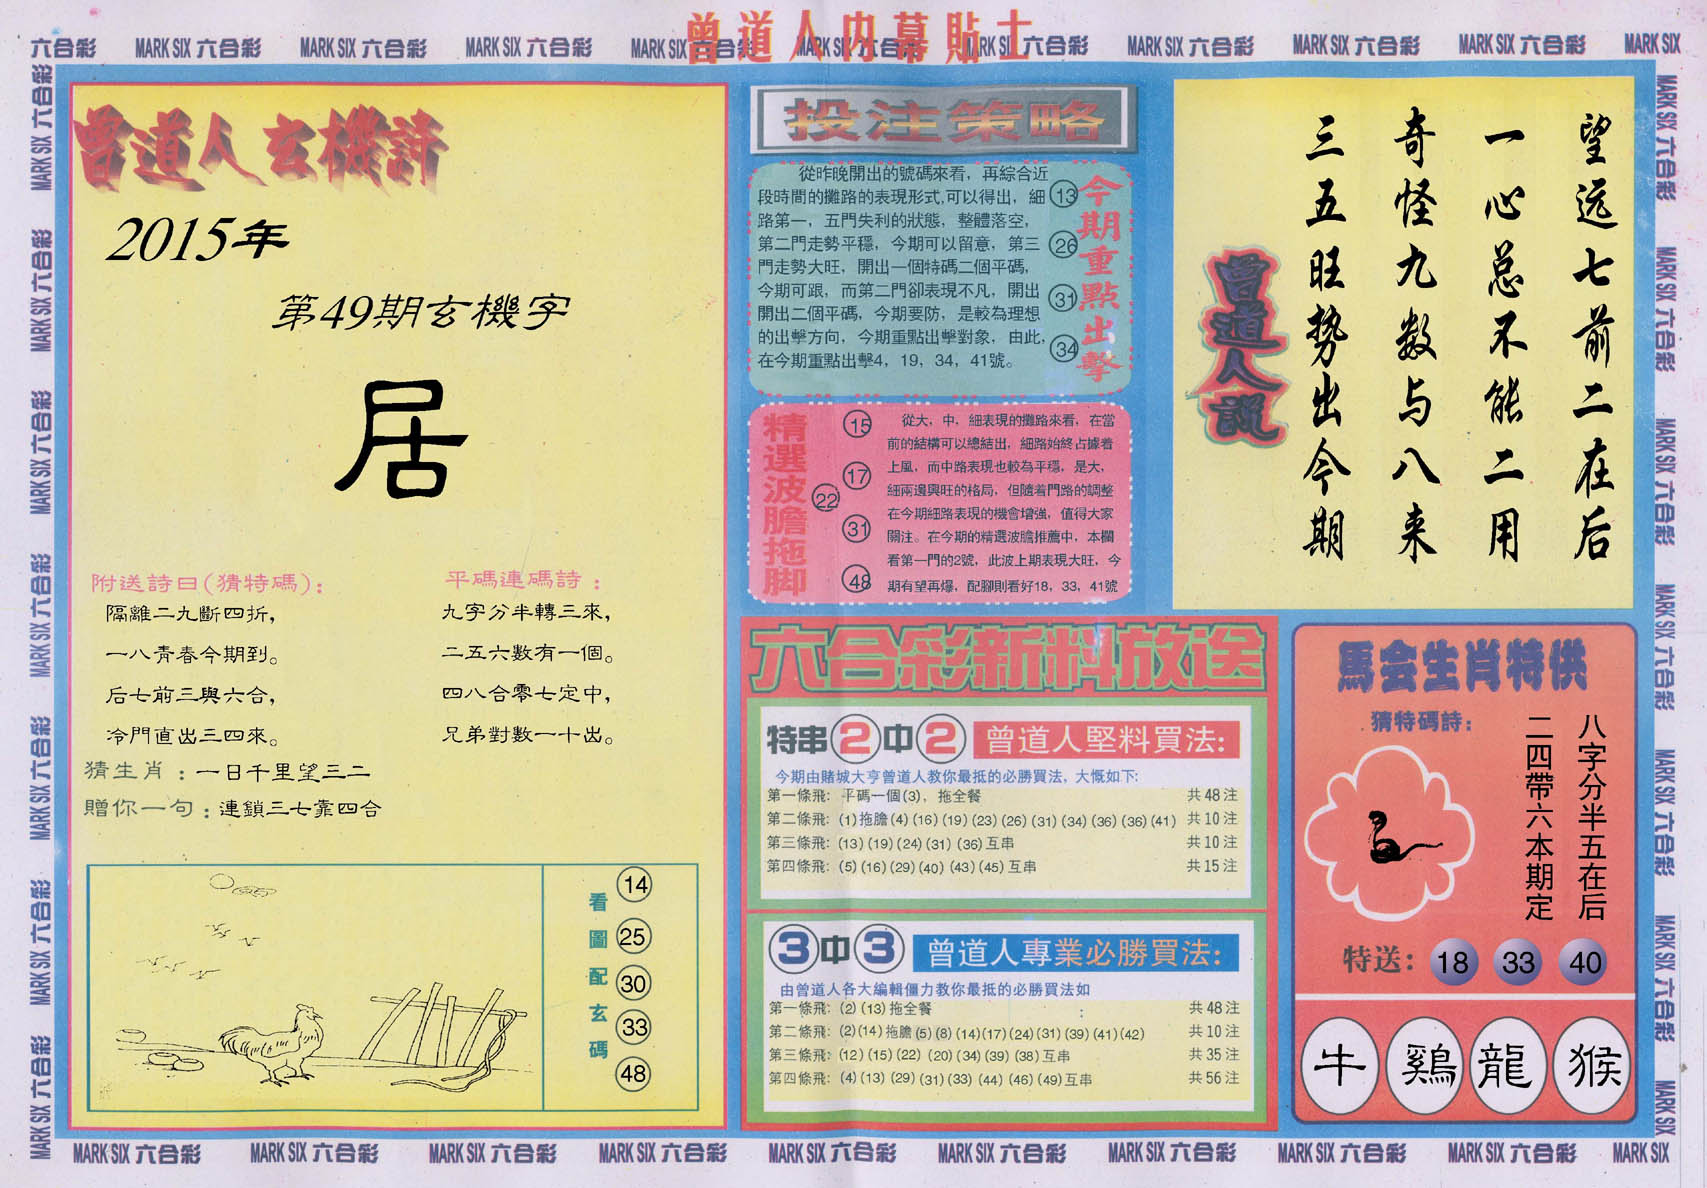 曾道人内幕貼士
六合彩 MARK SIX 六合彩 MARK SIX 六合彩 MARK SIX 六合彩 MARK SIX 六合彩 MARK SIX 六合彩 MARK SIX 六合彩 MARK SIX 六合彩 MARK SIX 六合彩 MARK SIX 六合彩 MARK SIX
曾道人玄機詩
2015年
第49期玄機字
居
附送詩曰(猜特碼):
隔離二九斷四折,
一八青春今期到。
后七前三與六合,
冷門直出三四來。
平碼連碼詩:
九字分半轉三來,
二五六數有一個。
四八合零七定中,
兄弟對數一十出。
猜生肖:一日千里望三二
贈你一句:連鎖三七靠四合
看圖配玄碼
14
25
30
33
48
投注策略
從昨晚開出的號碼來看，再綜合近
段時間的攤路的表現形式,可以得出，細
路第一，五門失利的狀態，整體落空，
第二門走勢平穩，今期可以留意，第三
門走勢大旺，開出一個特碼二個平碼，
今期可跟，而第二門卻表現不凡，開出
開出二個平碼，今期要防，是較為理想
的出擊方向，今期重點出擊對象，由此,
在今期重點出擊4，19，34，41號。
13
26
31
34
今期重點出擊
精選波膽拖脚
15
17
22
31
48
從大，中，細表現的攤路來看，在當
前的結構可以總結出，細路始終占據着
上風，而中路表現也較為平穩，是大，
細兩邊興旺的格局，但隨着門路的調整
在今期細路表現的機會增強，值得大家
關注。在今期的精選波膽推薦中，本欄
看第一門的2號，此波上期表現大旺，今
期有望再爆，配腳則看好18，33，41號
望远七前二在后
一心总不能二用
奇怪九数与八来
三五旺势出今期
曾道人説
六合彩新料放送
特串2中2 曾道人堅料買法:
今期由賭城大亨曾道人教你最抵的必勝買法，大慨如下:
第一條飛: 平碼一個(3)，拖全餐 共48注
第二條飛: (1)拖膽(4)(16)(19)(23)(26)(31)(34)(36)(36)(41) 共10注
第三條飛: (13)(19)(24)(31)(36)互串 共10注
第四條飛: (5)(16)(29)(40)(43)(45)互串 共15注
3中3 曾道人專業必勝買法:
由曾道人各大編輯僵力教你最抵的必勝買法如
第一條飛: (2)(13)拖全餐 共48注
第二條飛: (2)(14)拖膽(5)(8)(14)(17)(24)(31)(39)(41)(42) 共10注
第三條飛: (12)(15)(22)(20)(34)(39)(38)互串 共35注
第四條飛: (4)(13)(29)(31)(33)(44)(46)(49)互串 共56注
馬会生肖特供
猜特碼詩:
八字分半五在后
二四帶六本期定
特送: 18 33 40
牛 鷄 龍 猴
MARK SIX 六合彩 MARK SIX 六合彩 MARK SIX 六合彩 MARK SIX 六合彩 MARK SIX 六合彩 MARK SIX 六合彩 MARK SIX 六合彩 MARK SIX 六合彩 MARK SIX 六合彩 MARK SIX